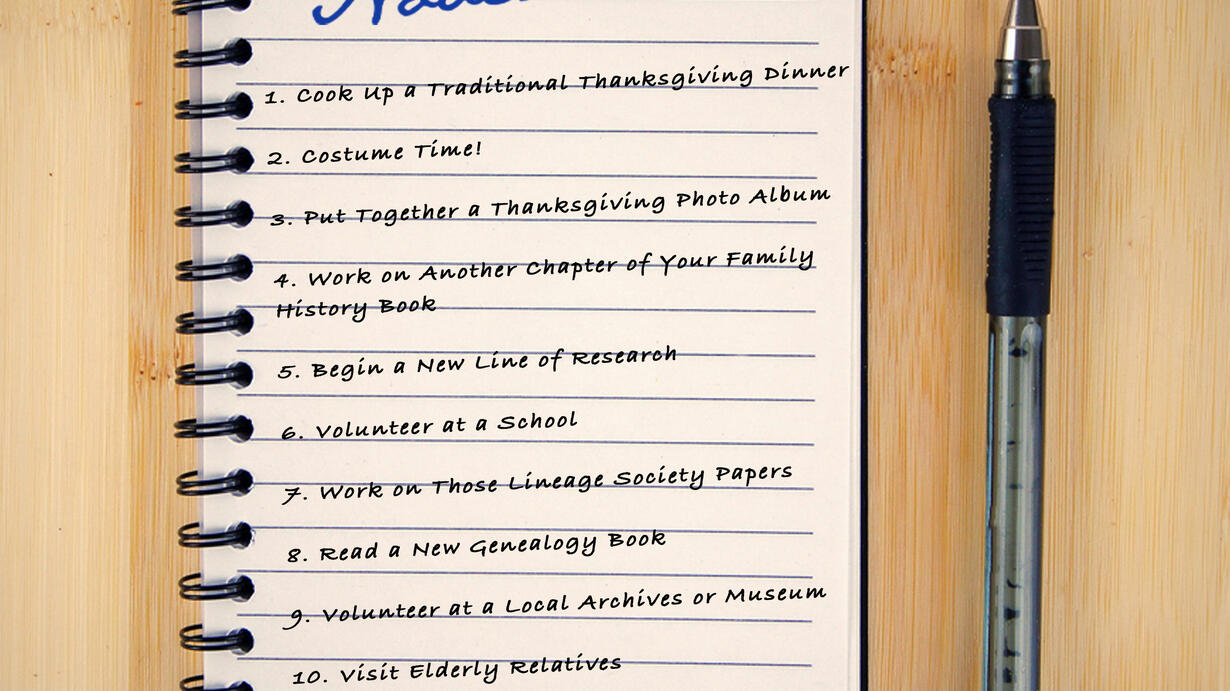 1. Cook Up a Traditional Thanksgiving Dinner
2. Costume Time!
3. Put Together a Thanksgiving Photo Album
4. Work on Another Chapter of Your Family
History Book
5. Begin a New Line of Research
6. Volunteer at a School
7. Work on Those Lineage Society Papers
8. Read a New Genealogy Book
9. Volunteer at a Local Archives or Museum
10. Visit Elderly Relatives